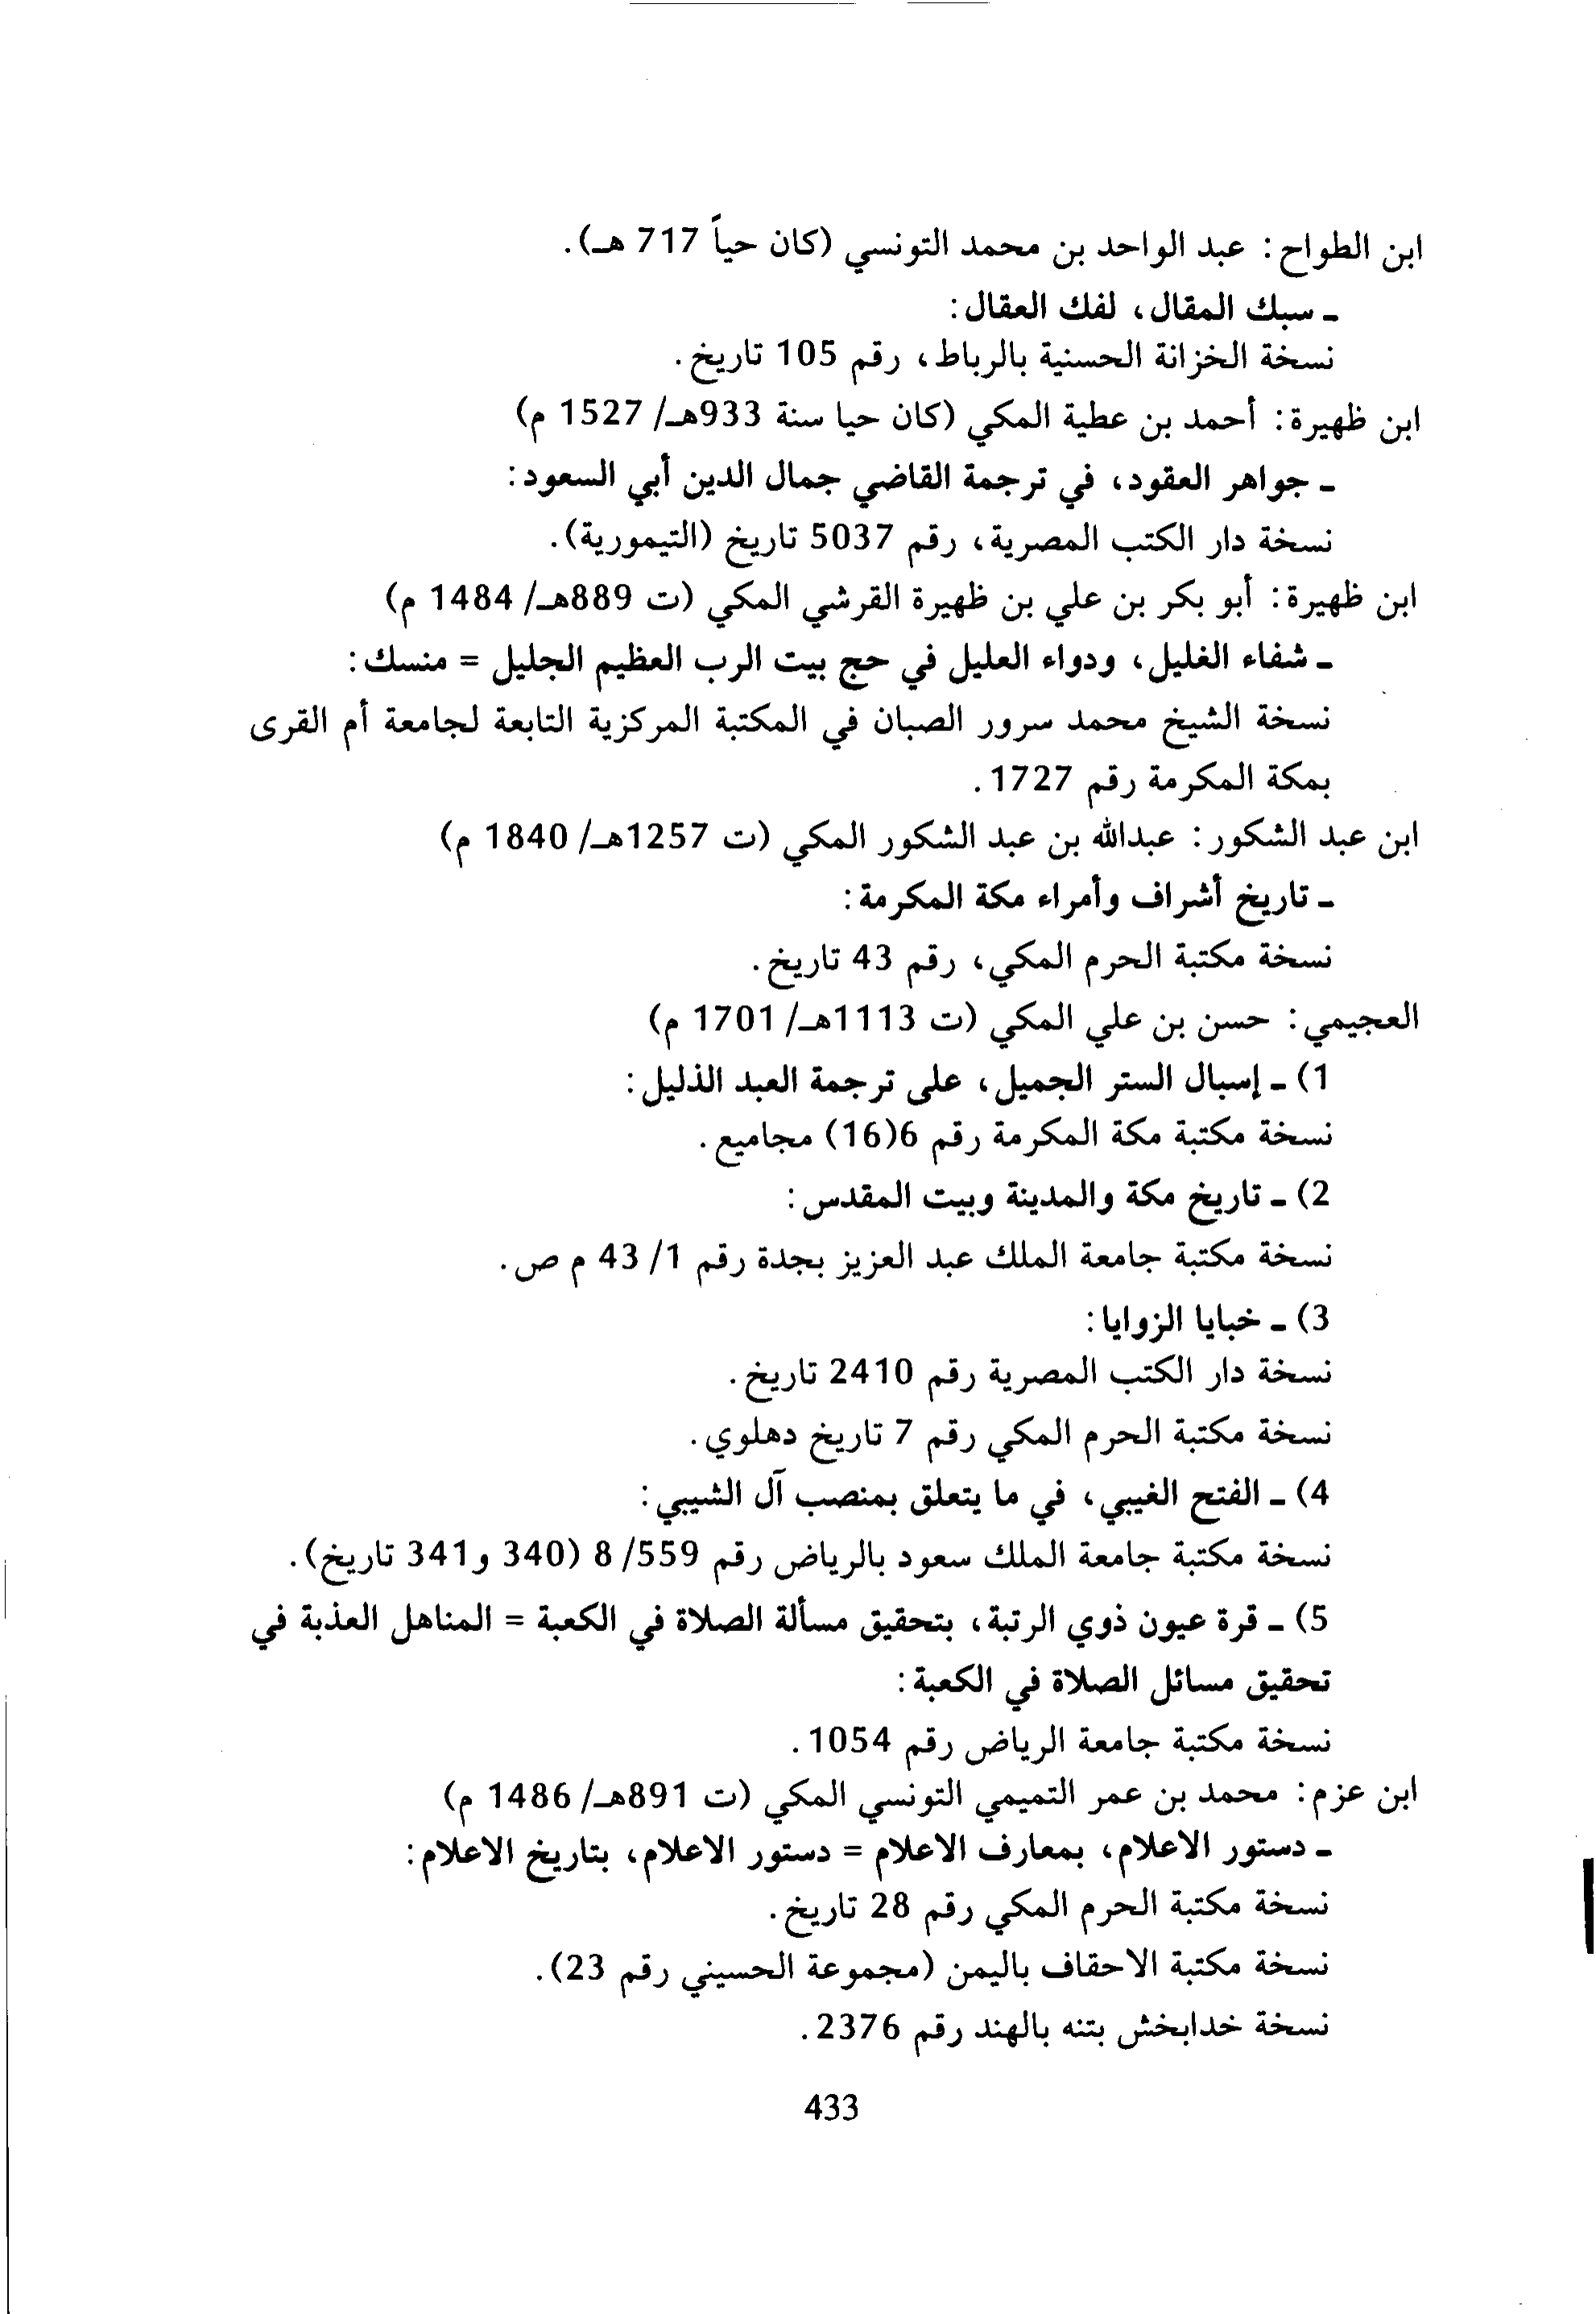 ابن الطواح: عبد الواحد بن محمد التونسي (كان حياً 717 هـ).
ـ سبك المقال، لفك العقال:
نسخة الخزانة الحسنية بالرباط، رقم 105 تاريخ.
ابن ظهيرة: أحمد بن عطية المكي (كان حيا سنة 933هـ/ 1527 م)
ـ جواهر العقود، في ترجمة القاضي جمال الدين أبي السعود:
نسخة دار الكتب المصرية، رقم 5037 تاريخ (التيمورية).
ابن ظهيرة: أبو بكر بن علي بن ظهيرة القرشي المكي (ت 889هـ/ 1484 م)
ـ شفاء الغليل، ودواء العليل في حج بيت الرب العظيم الجليل = منسك:
نسخة الشيخ محمد سرور الصبان في المكتبة المركزية التابعة لجامعة أم القرى
بمكة المكرمة رقم 1727.
ابن عبد الشكور: عبدالله بن عبد الشكور المكي (ت 1257هـ/ 1840 م)
ـ تاريخ أشراف وأمراء مكة المكرمة:
نسخة مكتبة الحرم المكي، رقم 43 تاريخ.
العجيمي: حسن بن علي المكي (ت 1113هـ/ 1701 م)
1) ـ إسبال الستر الجميل، على ترجمة العبد الذليل:
نسخة مكتبة مكة المكرمة رقم 6(16) مجاميع.
2) ـ تاريخ مكة والمدينة وبيت المقدس:
نسخة مكتبة جامعة الملك عبد العزيز بجدة رقم 1/ 43 م ص.
3) ـ خبايا الزوايا:
نسخة دار الكتب المصرية رقم 2410 تاريخ.
نسخة مكتبة الحرم المكي رقم 7 تاريخ دهلوي.
4) ـ الفتح الغيبي، في ما يتعلق بمنصب آل الشيبي:
نسخة مكتبة جامعة الملك سعود بالرياض رقم 559/ 8 (340 و341 تاريخ).
5) ـ قرة عيون ذوي الرتبة، بتحقيق مسألة الصلاة في الكعبة = المناهل العذبة في
تحقيق مسائل الصلاة في الكعبة:
نسخة مكتبة جامعة الرياض رقم 1054.
ابن عزم: محمد بن عمر التميمي التونسي المكي (ت 891هـ/ 1486 م)
ـ دستور الاعلام، بمعارف الاعلام = دستور الاعلام، بتاريخ الاعلام:
نسخة مكتبة الحرم المكي رقم 28 تاريخ.
نسخة مكتبة الاحقاف باليمن (مجموعة الحسيني رقم 23).
نسخة خدابخش بتنه بالهند رقم 2376.
433